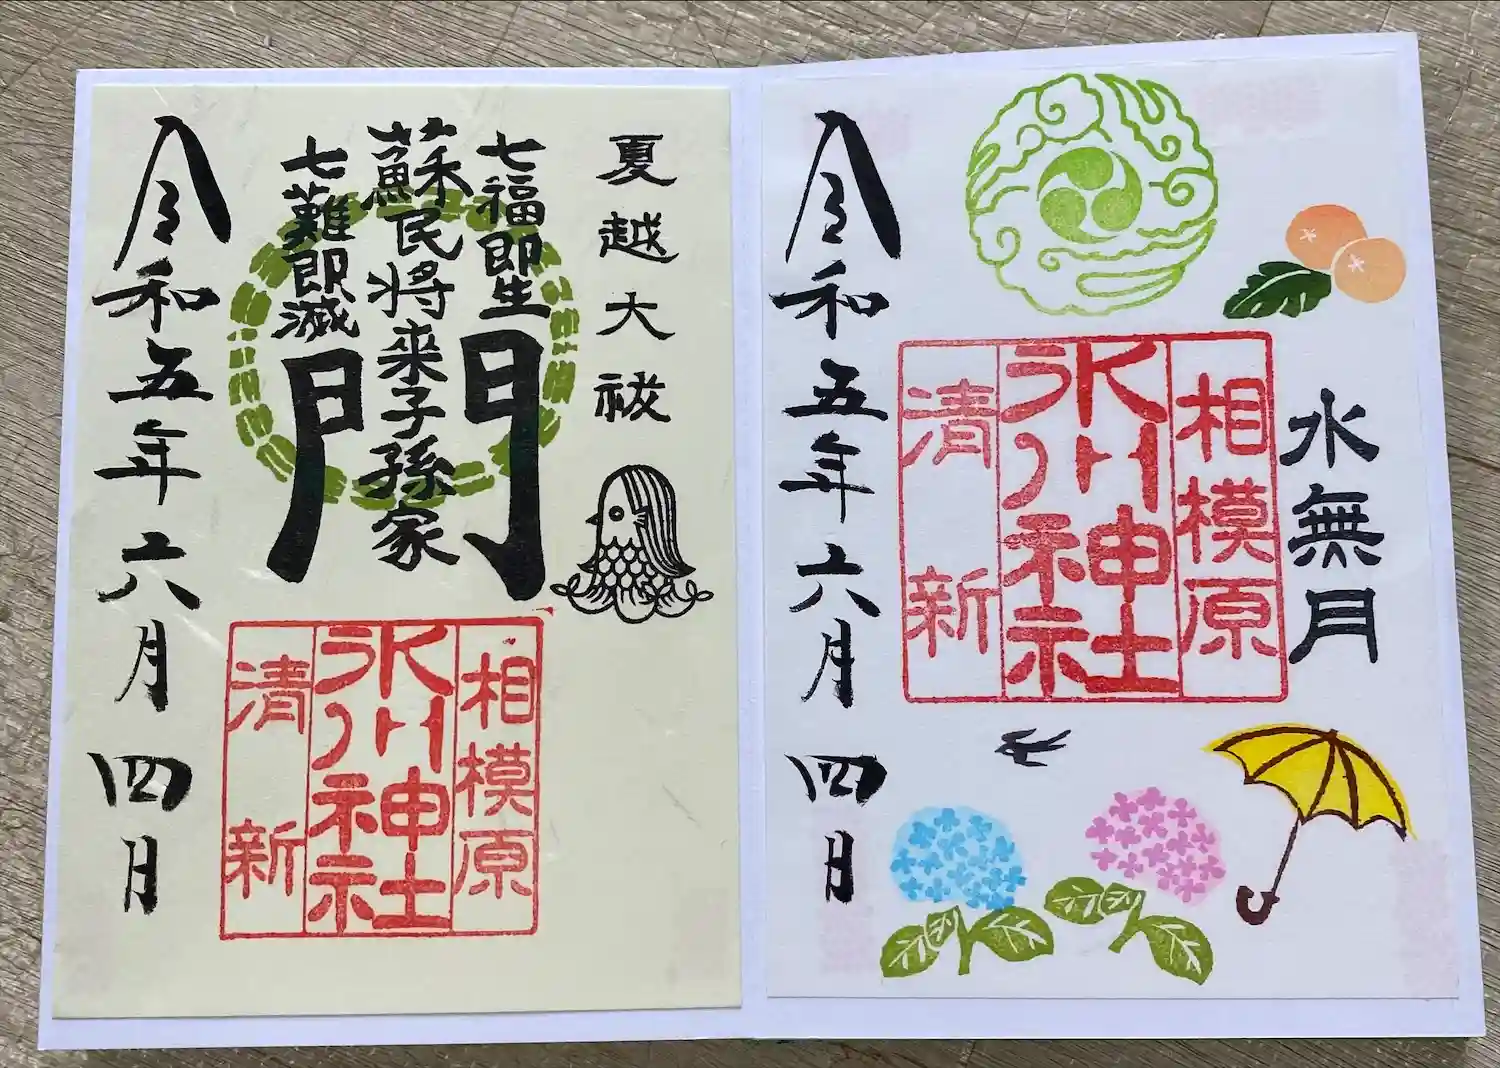 水無月
相模原
氷川神社
清新
令和五年六月四日
夏越大祓
七福即生
蘇民将来子孫家
門
七難即滅
相模原
氷川神社
清新
令和五年六月四日